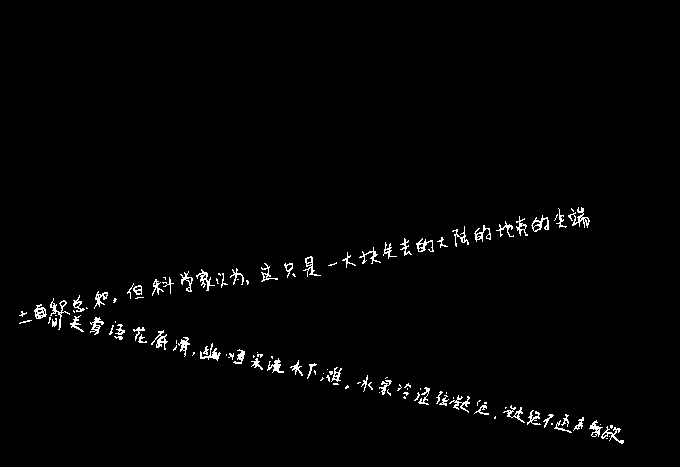 但科学家以为，这只是一大块失去的大陆的地壳的尖端
间关莺语花底滑，幽咽泉流水下滩。水泉冷涩弦凝绝，凝绝不通声暂歇。